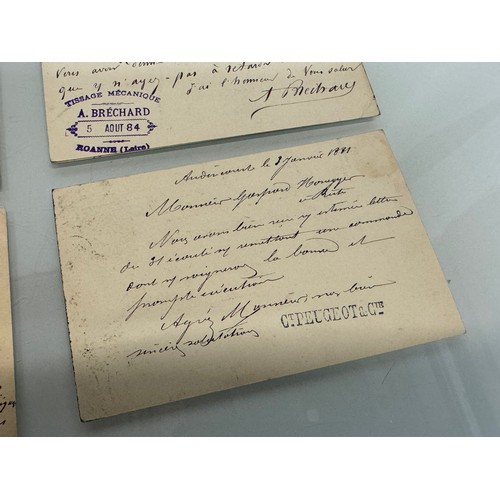 Vous avoir
que y n'ayez pas à retards
J'ai l'honneur de vous saluer
A Bréchard
TISSAGE MÉCANIQUE
A. BRÉCHARD
5 AOUT 84
ROANNE (Loire)
Audincourt le 3 Janvier 1881
Monsieur Gaspard Honegger
à Rüti
Nous avons bien reçu v/ estimée lettre
du 31 écoulé n/ remettant une commande
dont n/ soignerons la bonne et
prompte exécution
Agréez Monsieur nos bien
sincères salutations
CT. PEUGEOT & CIE